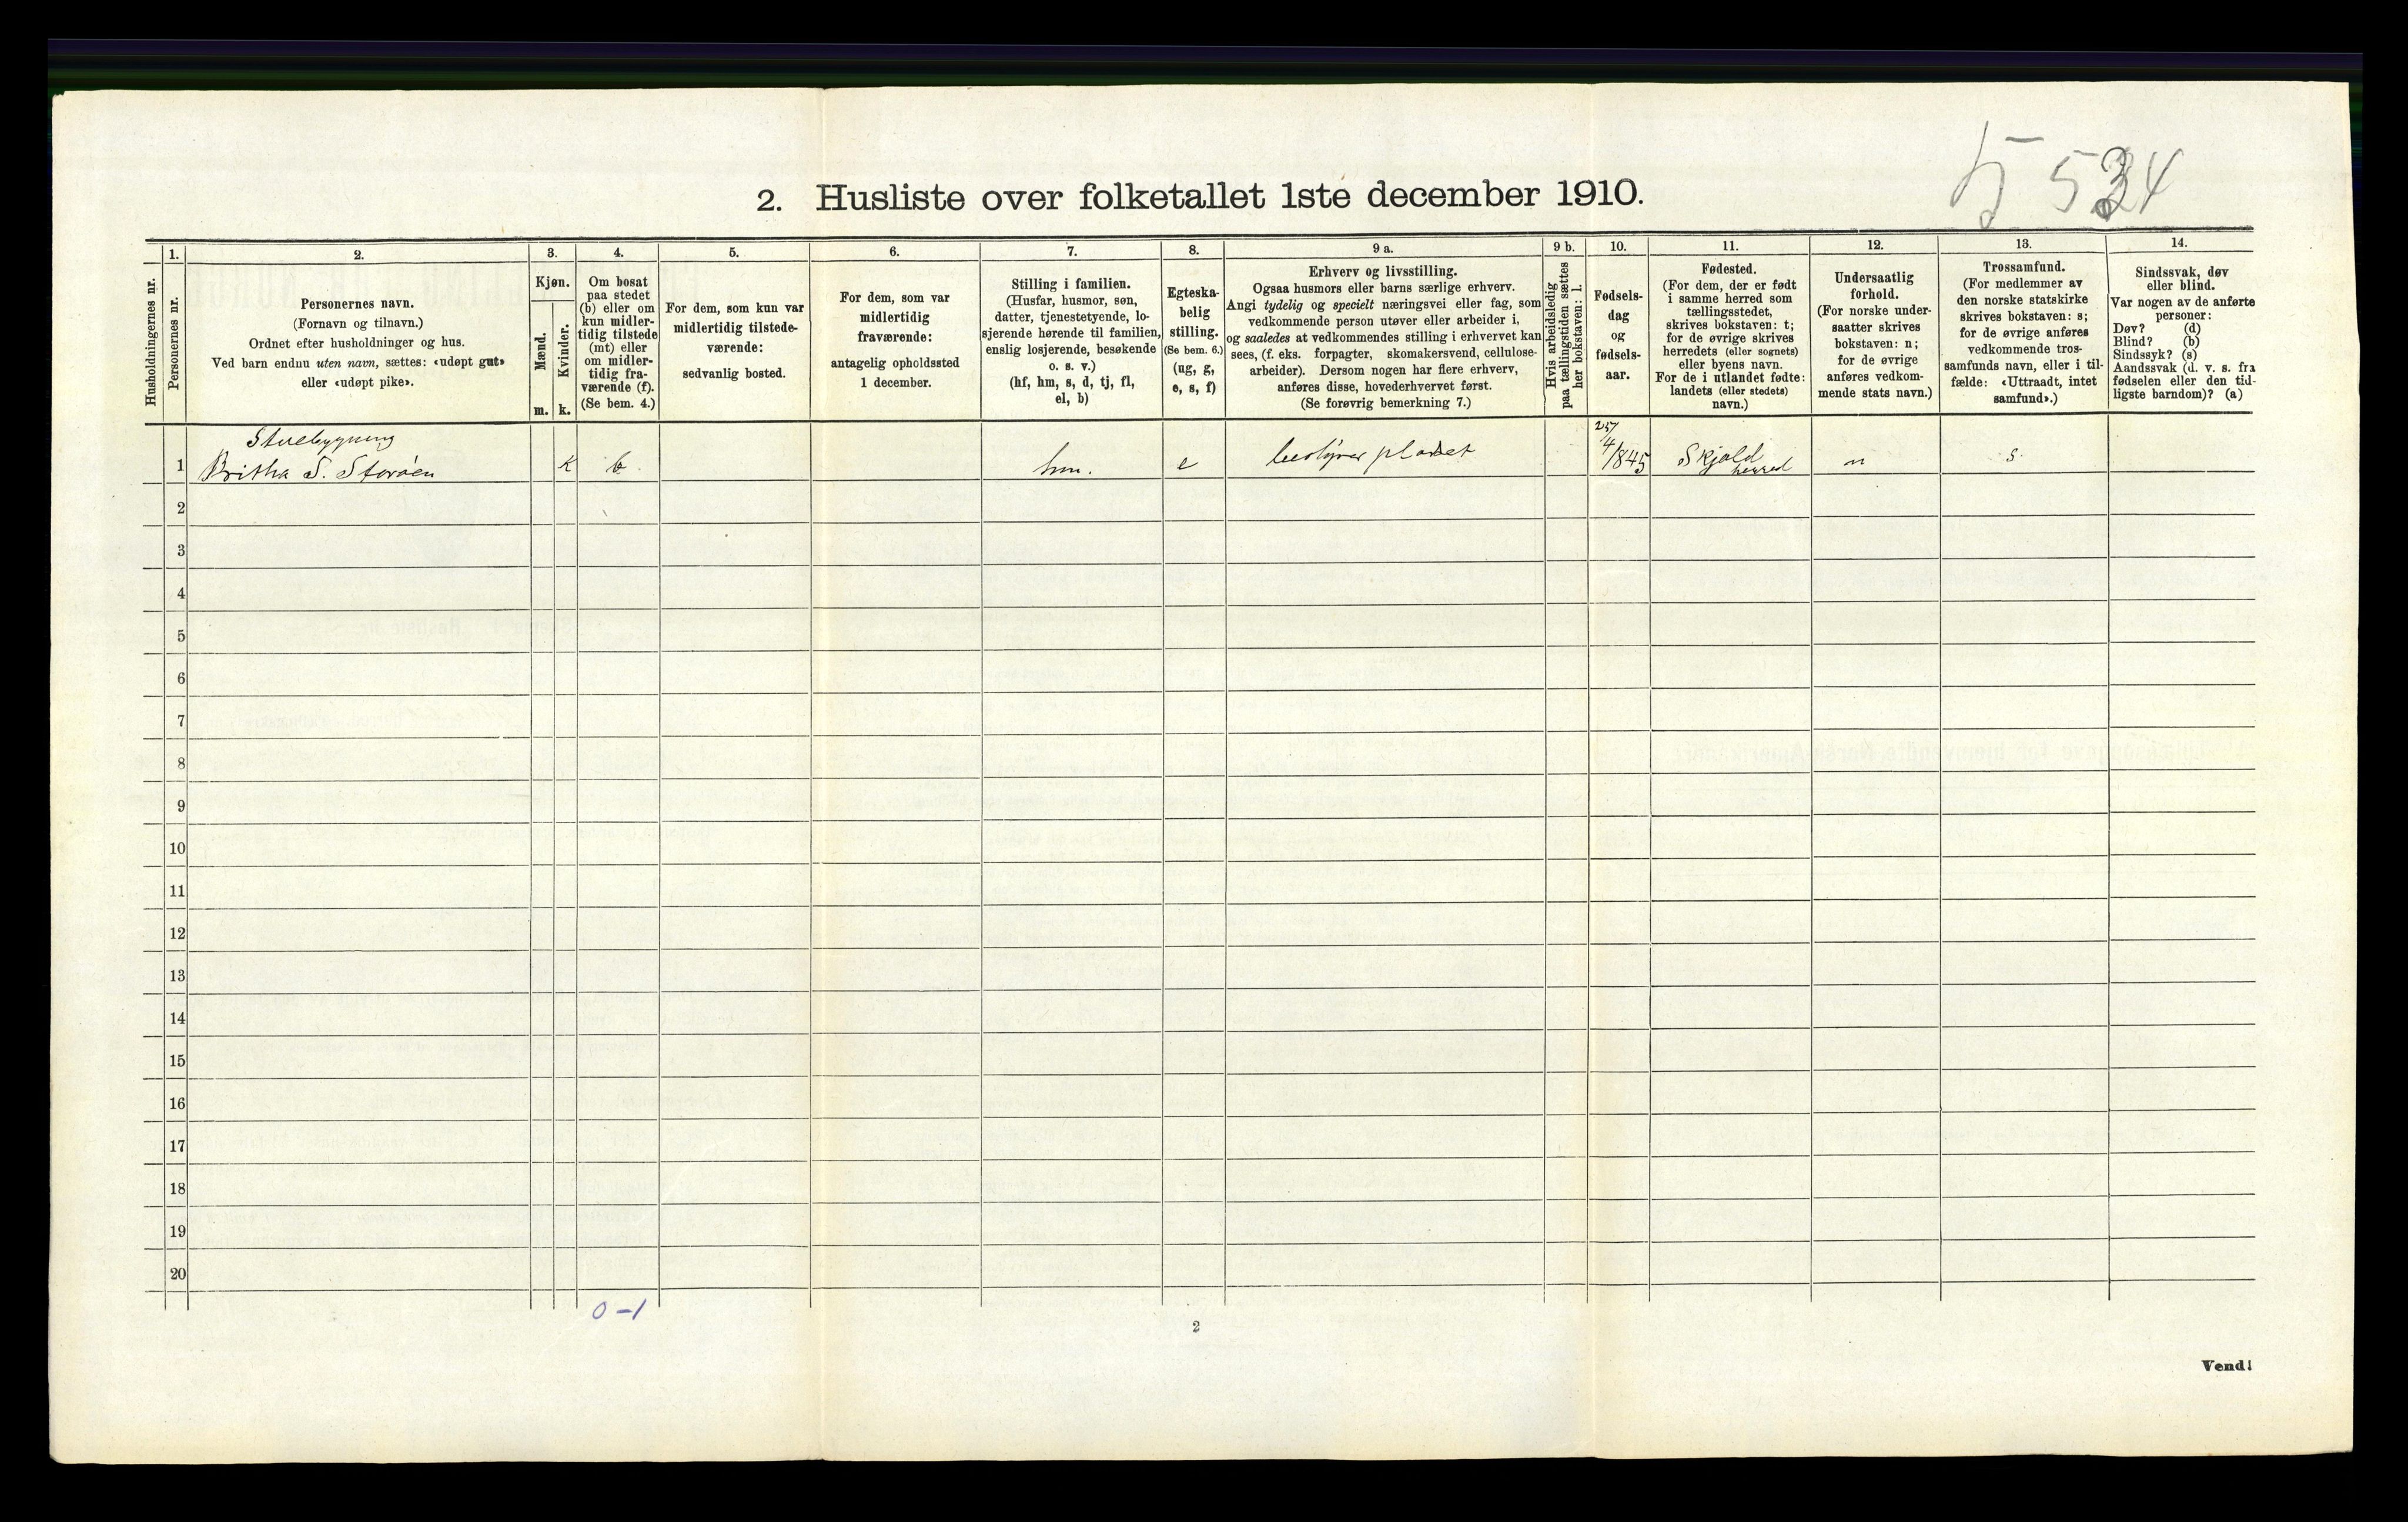 5 534
2. Husliste over folketallet 1ste december 1910.
Husholdningernes nr.
1.
Personernes nr.
2.
Personernes navn.
(Fornavn og tilnavn.)
Ordnet efter husholdninger og hus.
Ved barn endnu uten navn, sættes: «udøpt gut»
eller «udøpt pike».
3.
Kjøn.
Mænd.
Kvinder.
m. k.
4.
Om bosat
paa stedet
(b) eller om
kun midler-
tidig tilstede
(mt) eller
om midler-
tidig fra-
værende (f).
(Se bem. 4.)
5.
For dem, som kun var
midlertidig tilstede-
værende:
sedvanlig bosted.
6.
For dem, som var
midlertidig
fraværende:
antagelig opholdssted
1 december.
7.
Stilling i familien.
(Husfar, husmor, søn,
datter, tjenestetyende, lo-
sjerende hørende til familien,
enslig losjerende, besøkende
o. s. v.)
(hf, hm, s, d, tj, fl,
el, b)
8.
Egteska-
belig
stilling.
(Se bem. 6.)
(ug, g,
e, s, f)
9 a.
Erhverv og livsstilling.
Ogsaa husmors eller barns særlige erhverv.
Angi tydelig og specielt næringsvei eller fag, som
vedkommende person utøver eller arbeider i,
og saaledes at vedkommendes stilling i erhvervet kan
sees, (f. eks. forpagter, skomakersvend, cellulose-
arbeider). Dersom nogen har flere erhverv,
anføres disse, hovederhvervet først.
(Se forøvrig bemerkning 7.)
9 b.
Hvis arbeidsledig
paa tællingstiden sættes
her bokstaven: l.
10.
Fødsels-
dag
og
fødsels-
aar.
11.
Fødested.
(For dem, der er født
i samme herred som
tællingsstedet,
skrives bokstaven: t;
for de øvrige skrives
herredets (eller sognets)
eller byens navn.
For de i utlandet fødte:
landets (eller stedets)
navn.)
12.
Undersaatlig
forhold.
(For norske under-
saatter skrives
bokstaven: n;
for de øvrige
anføres vedkom-
mende stats navn.)
13.
Trossamfund.
(For medlemmer av
den norske statskirke
skrives bokstaven: s;
for de øvrige anføres
vedkommende tros-
samfunds navn, eller i til-
fælde: «Uttraadt, intet
samfund».)
14.
Sindssvak, døv
eller blind.
Var nogen av de anførte
personer:
Døv? (d)
Blind? (b)
Sindssyk? (s)
Aandssvak (d. v. s. fra
fødselen eller den tid-
ligste barndom)? (a)
Stuebygning
1 Britha S. Storøen k b hm. e bestyrer pladset 25/4/845 Skjold herred n s.
2
3
4
5
6
7
8
9
10
11
12
13
14
15
16
17
18
19
20
0-1
2
Vend!